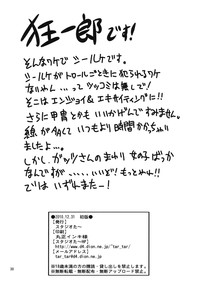 狂一郎です!
そんなワケでシールケです。
シールケがトロールごときに犯られるワケ
ないれん…ってツッコミは無しで!
そこはエンジョイ&エキサイティングに!!
さらに甲冑とかも いいかげんですみません。
線が多くていつもより時間かかっちゃい
ましたよ…。
しかし、ガッツさんのまわり女の子ばっか
なんですが いいぞ!もっとやれ!!
では いずれまたー!
■2010.12.31 初版■
【発行】
スタジオたー
【印刷】
丸正インキ様
【スタジオたーHP】
http://www.d4.dion.ne.jp/~tar_tar/
【メールアドレス】
tar_tar@d4.dion.ne.jp
※18歳未満の方の購読・貸し出しを禁止します
※無断転載・無断配布・無断アップロード禁止